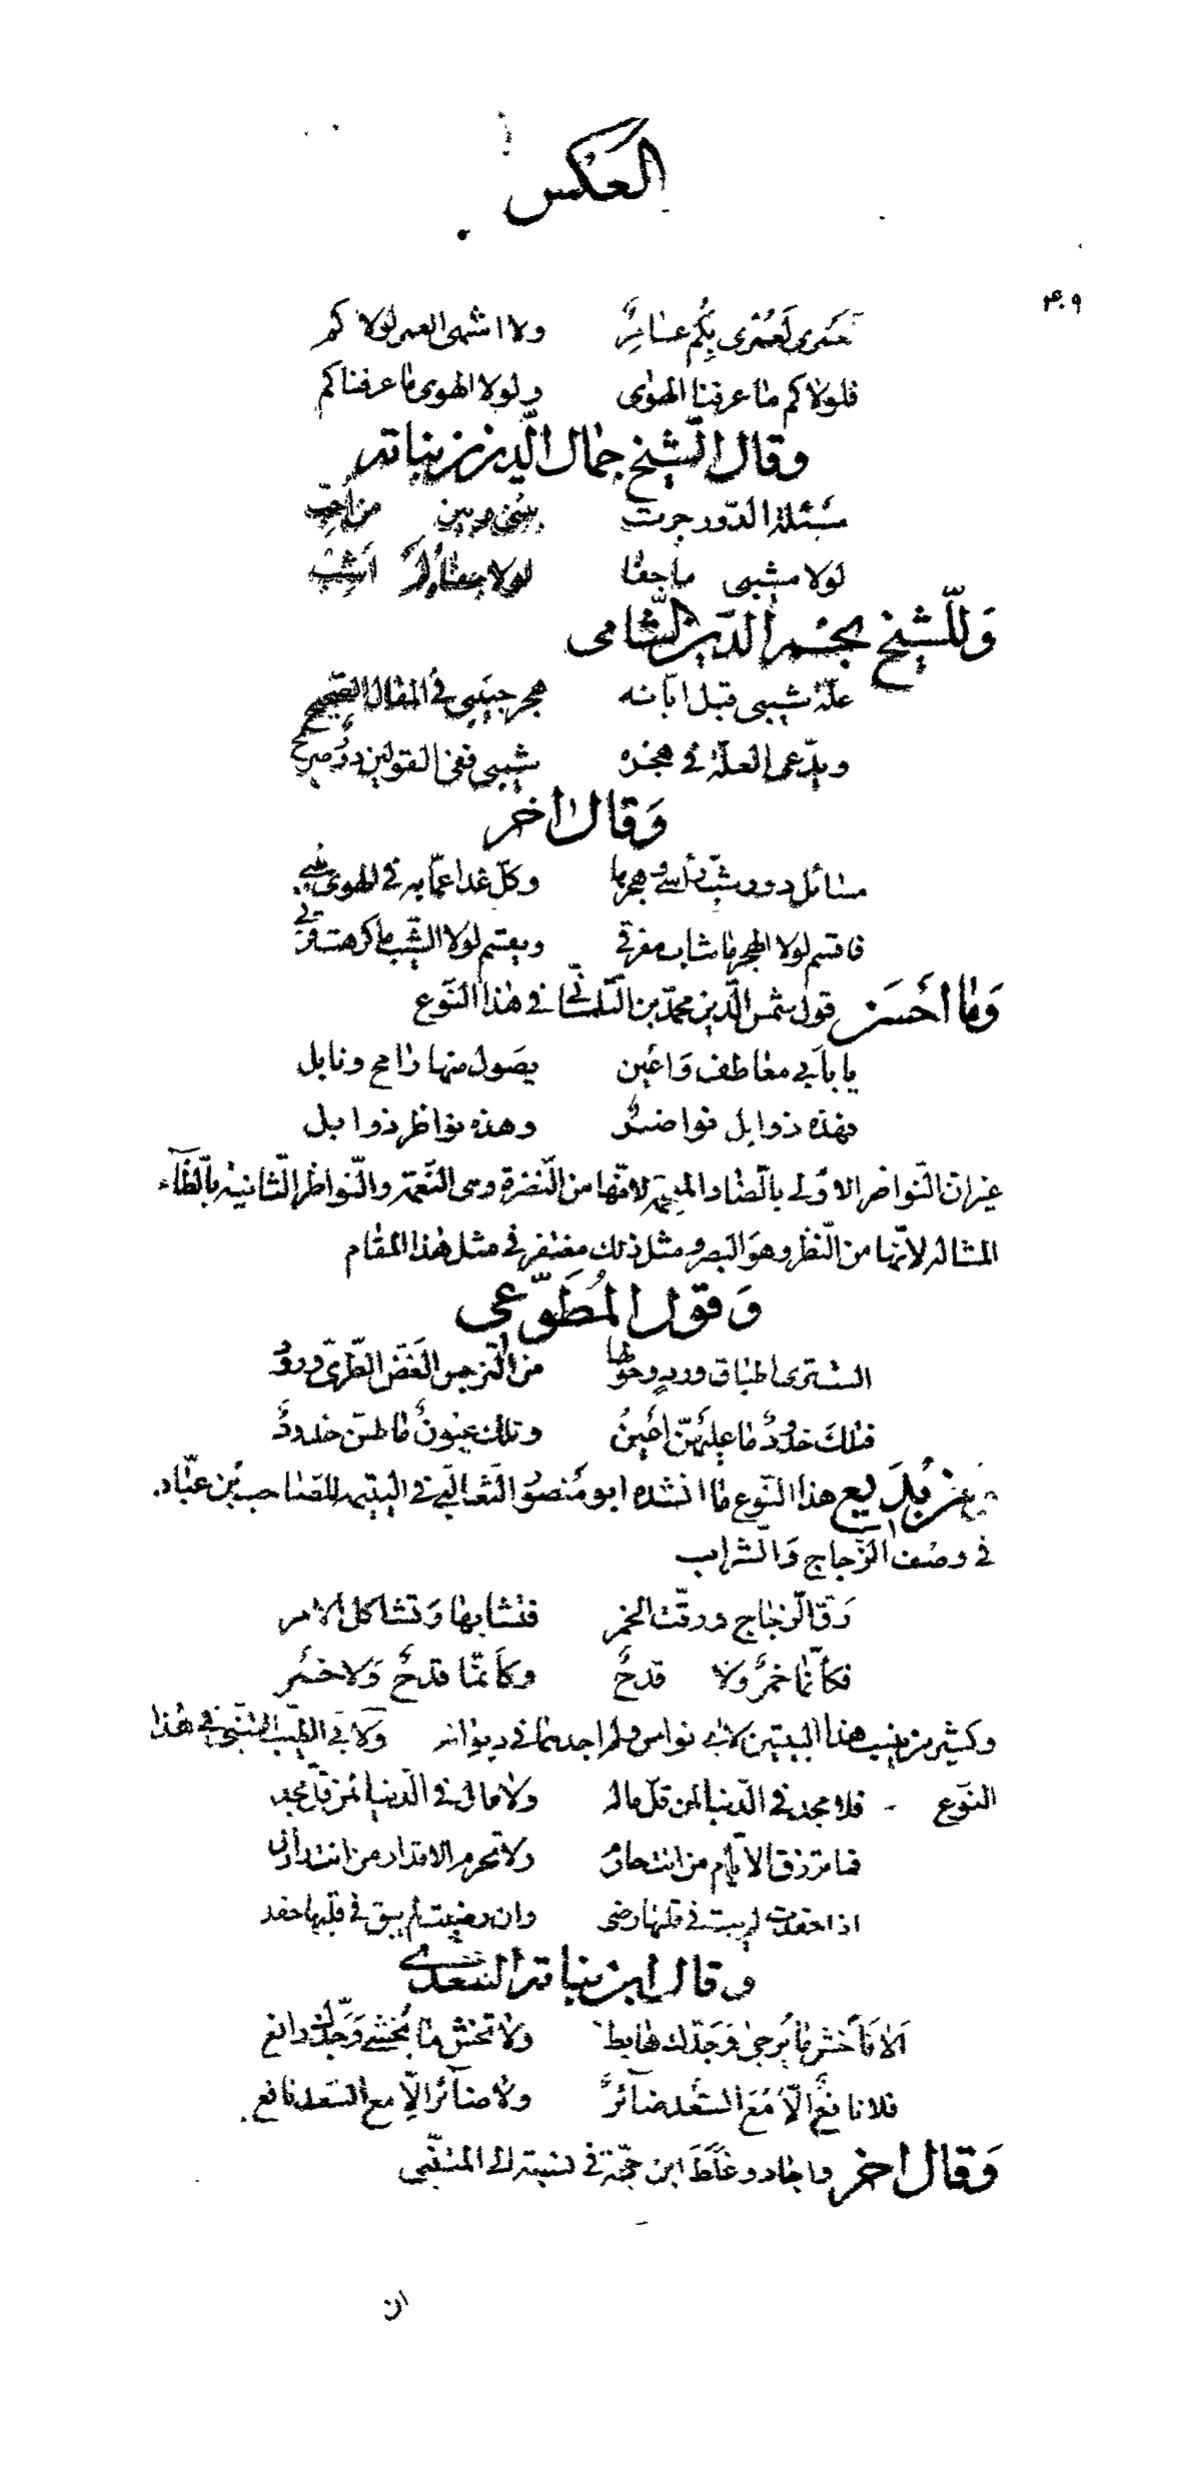 العكس
٤٠٩
لعمرى لعمرى بكم عامر ولا اشتهى العمر لولاكم
فلولاكم ما عرفنا الهوى ولولا الهوى ما عرفناكم
وقال الشيخ جمال الدين بن نباته
مسئلة الدور جرت بينى وبين من احب
لولا مشيبى ما جفا لولا جفاه لم اشب
وللشيخ نجم الدين الشامى
علة شيبى قبل ابانه هجر حبيبى فى المقال الصحيح
ويدعى العلة فى هجره شيبى ففى القولين دور صريح
وقال اخر
مسائل دور شيب راسى وهجرها وكل غدا عما به فى الهوى
فاقسم لولا الهجر ما شاب مفرقى ويقسم لولا الشيب ما كرهت
وما احسن قول شمس الدين محمد بن التلمسانى فى هذا النوع
يا بابى معاطف واعين يصول منها رامح ونابل
فهذه ذوابل نواضر وهذه نواظر ذوابل
غير ان النواضر الاولى بالضاد المعجمة لانها من النضرة وهى النعمة والنواظر الثانية بالظاء
المشالة لانها من النظر وهو البصر ومثل ذلك مغتفر فى مثل هذا المقام
وقول المطوعى
الست ترى اطباق ورد وحولها من النرجس الغض الطرى ورود
فتلك خدود ما عليهن اعين وتلك عيون ما لهن خدود
ومن بديع هذا النوع ما انشده ابو منصور الثعالبى فى اليتيمة للصاحب بن عباد
فى وصف الزجاج والشراب
رق الزجاج ورقت الخمر فتشابها وتشاكل الامر
فكانما خمر ولا قدح وكانما قدح ولا خمر
وكثير من ينسب هذا البيتين لابى نواس ولم اجدهما فى ديوانه ولابى الطيب المتنبى فى هذا
النوع فلا مجد فى الدنيا لمن قل ماله ولا مال فى الدنيا لمن قل مجده
فما ترزق الايام من ولا تحرم الاقدار من
اذا حقدت لم يبت فى قلبها رضى وان رضيت لم يبق فى قلبها حقد
وقال ابن نباته السعدى
الا فاخش ما يرجى وجدك هابط ولا تخش ما يخشى وجدك رافع
فلا نافع الا مع السعد ضائر ولا ضائر الا مع السعد نافع
وقال اخر واجاد وغلط ابن حجة فى نسبته الى المتنبى
ان